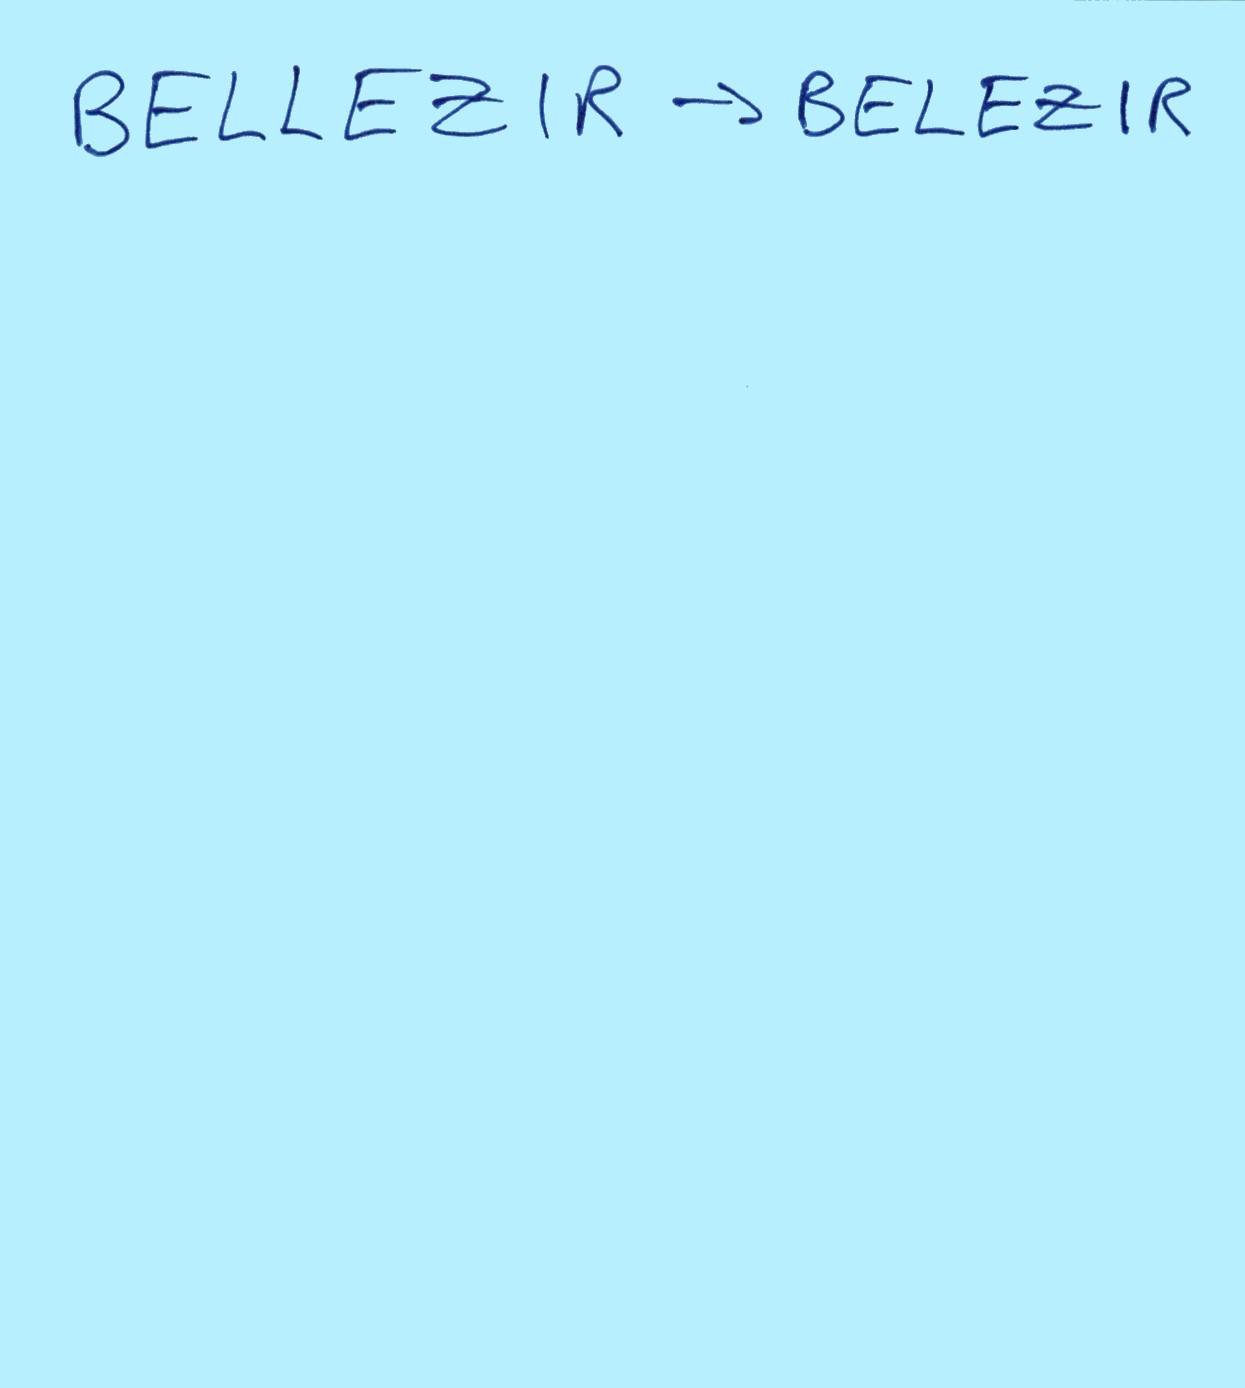 BELLEZIR → BELEZIR